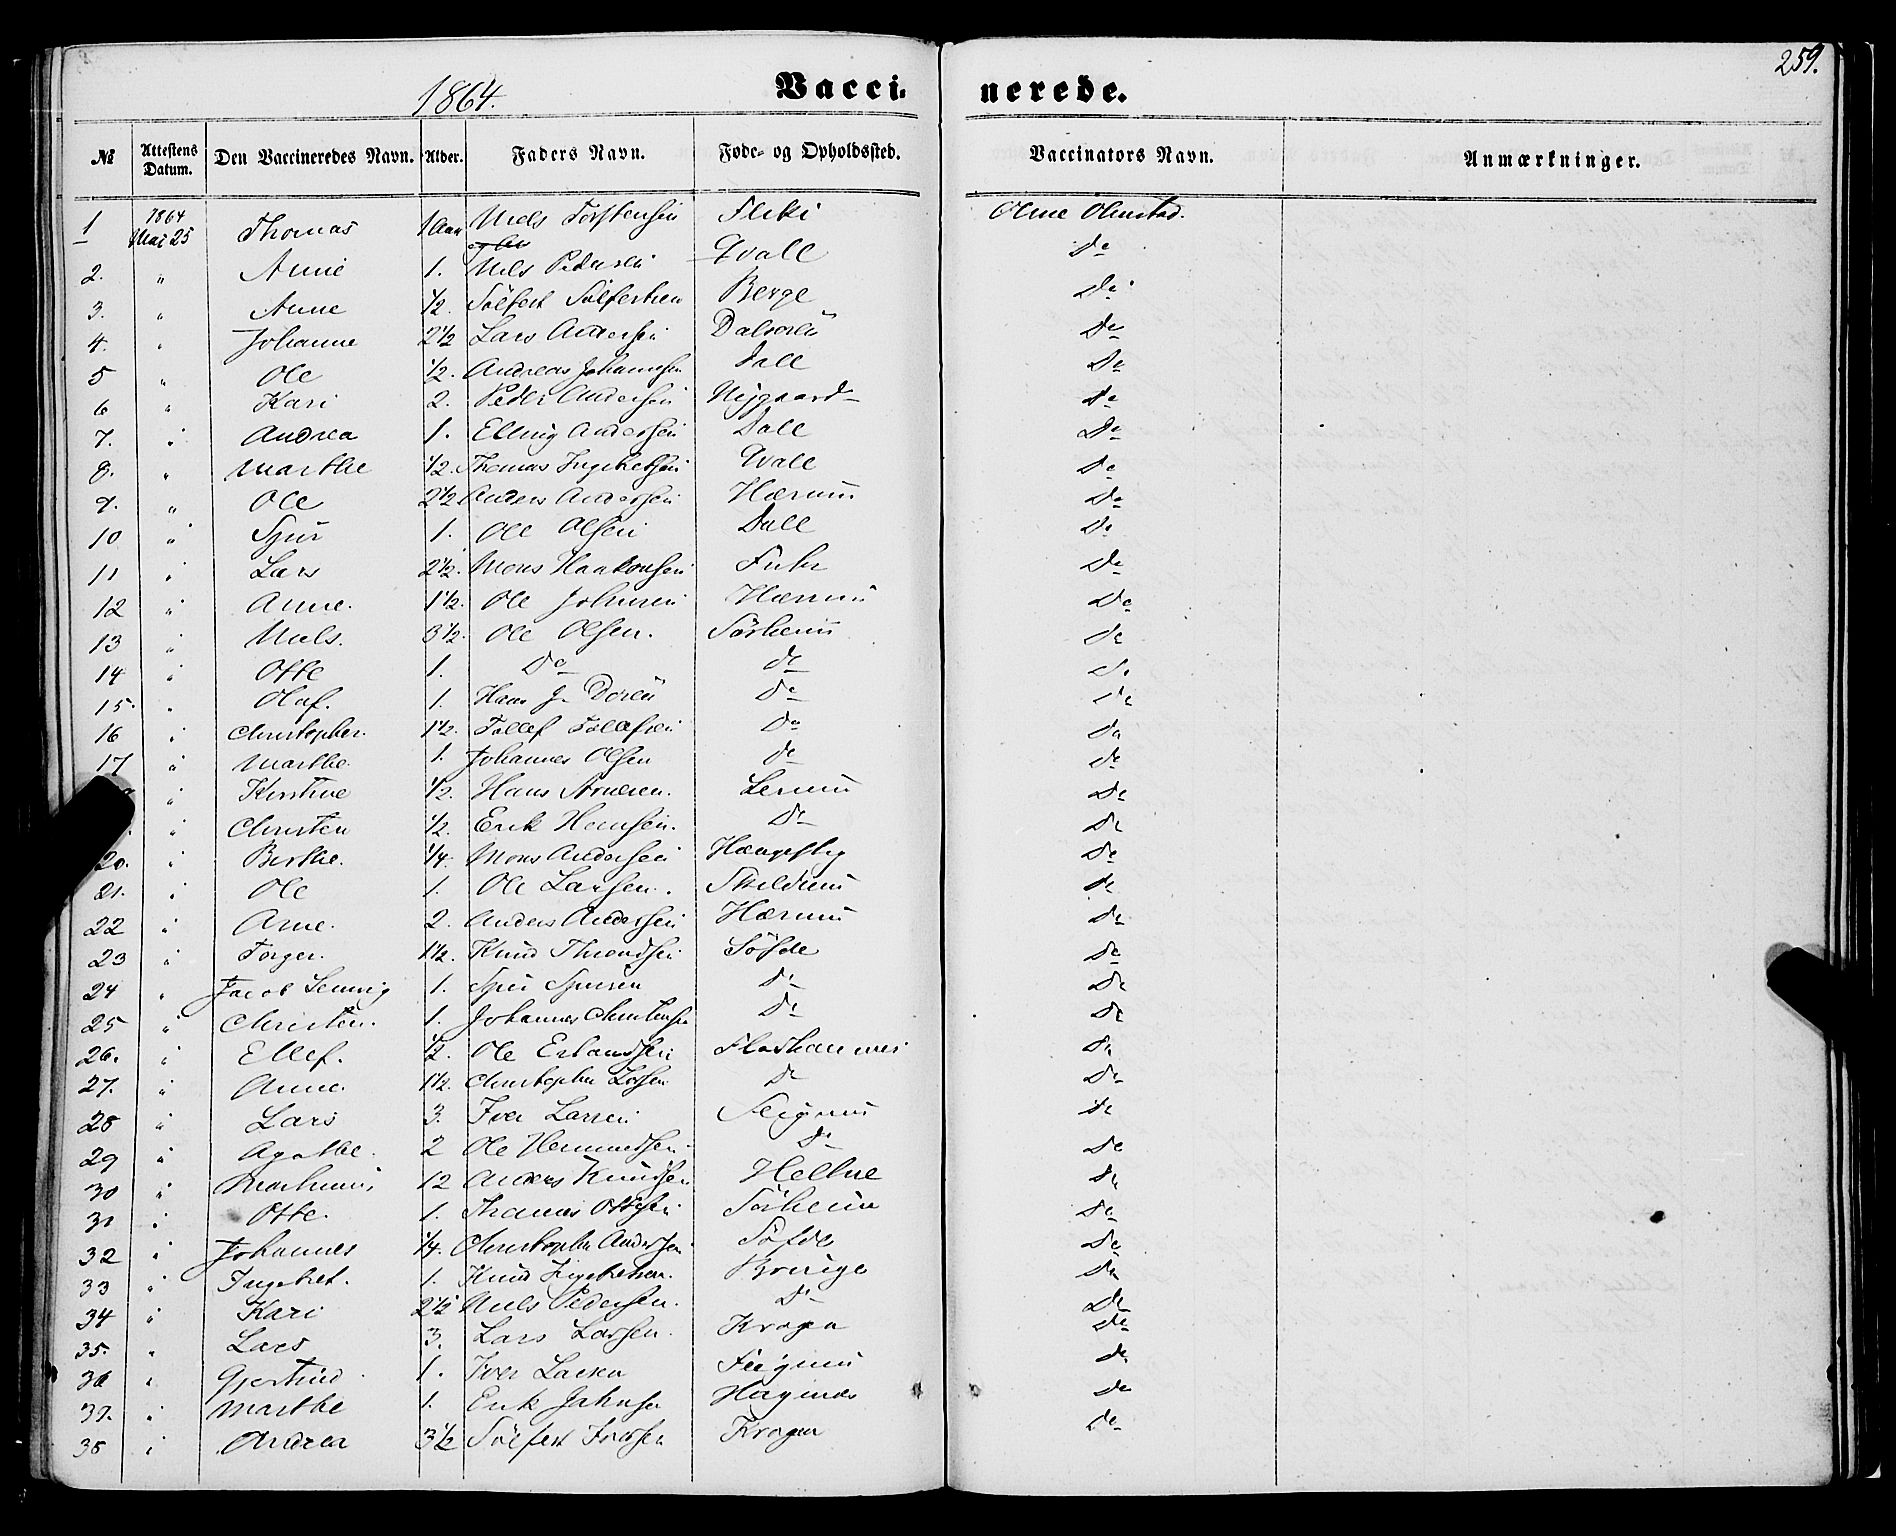 259.
1864. Vacci- nerede.
№ Attestens Datum. Den Vaccineredes Navn. Alder. Faders Navn. Føde- og Opholdssted. Vaccinators Navn. Anmærkninger.
1 1864 Mai 25 Thomas 1 Aar Niels Torstensen Fleki Olme Olmstad.
2. " Anne 1. Niels Pedersen Qvall Do
3. " Anne 1/2. Sölfest Sölfestsen Berge Do
4. " Johanne 2 1/2 Lars Andersen Dalsoren Do
5 " Ole 1/2. Andreas Johannesen Dall Do
6 " Kari 2. Peder Andersen Nÿgaard Do
7. " Andrea 1. Elling Andersen Dall Do
8. " Marthe 1/2. Thomas Ingebretsen Qvall Do
9. " Ole 2 1/2 Anders Andersen Hærum Do
10 " Sjur 1. Ole Olsen Dall Do
11 " Lars 2 1/2. Mons Haakonsen Fuhr Do
12 " Anne. 1 1/2. Ole Johnsen Hærum Do
13 " Niels. 3 1/2. Ole Olsen. Sörheim Do
14 " Otte 1. Do do Do
15. " Olaf. 1. Hans J. Doren Do Do
16 " Christopher. 1 1/2. Tollef Tollefsen Do Do
17 " Marthe. 1. Johannes Olsen do do
" Kirstine 1/2. Hans Arnesen. Lerum Do
" Christen 1/2. Erik Hansen. Do Do
20. " Birthe. 1/4. Mons Andersen Do
21. " Ole 1. Ole Larsen. Skildum do
22 " Arne. 2. Anders Andersen Hærum Do
23 " Torger. 1 1/2. Knud Throndsen Söfde Do
24 " Jacob 1. Sjur Sjursen Do Do
25 " Christen. 1. Johannes Christensen Do Do
26. " Ellef. 1/2. Ole Erlandsen Do
27. " Anne. 1 1/2. Christopher Do Do
28 " Lars 3. Iver Larsen Do
29 " Agathe. 2 Ole Do Do
30 " 12 Anders Knudsen Do
31 " Otte. 1. Thomas Ottesen Sörheim Do
32 " Johannes 1/4. Christopher Andersen Söfde Do
33 " Ingebret. 1. Knud Ingebretsen. Do
34 " Kari 2 1/2 Niels Pedersen. Do Do
35. " Lars 3. Lars Larsen. Krogen Do
36 " Gjertrud 1. Iver Larsen do
37. " Marthe 1. Erik Do
38 " Andrea 3 1/2 Sölfest Iversen Krogen Do